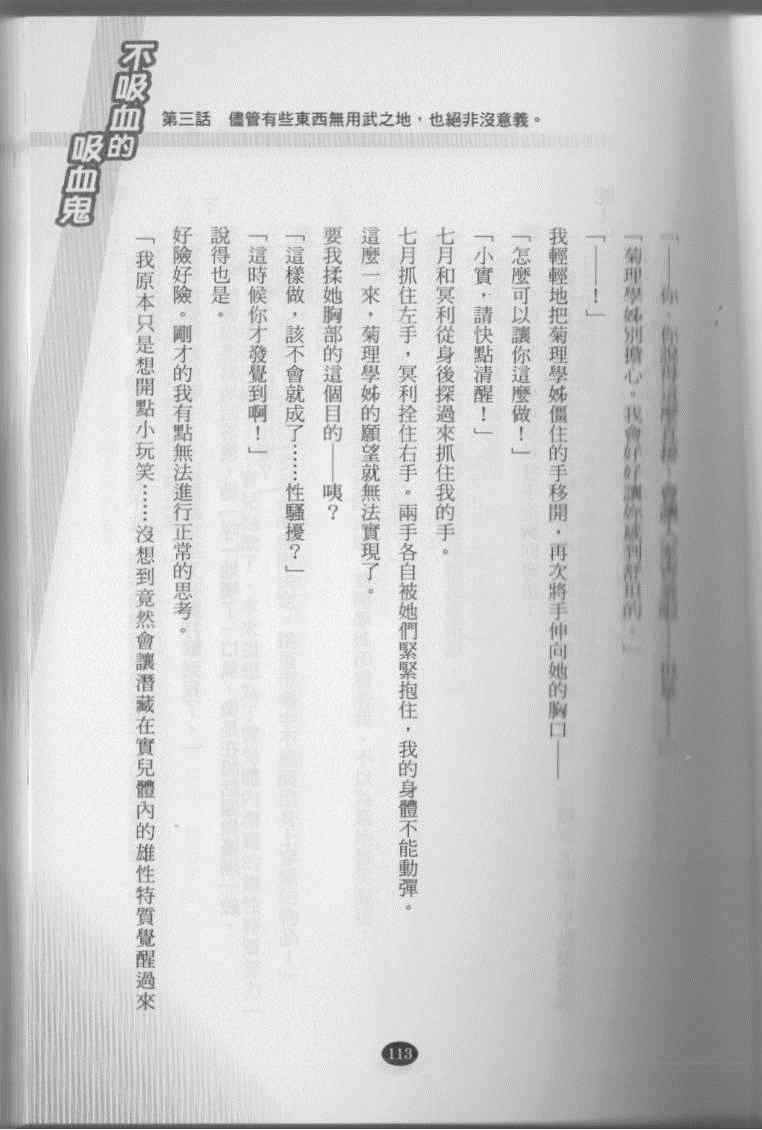 不吸血的
吸血鬼
第三話　儘管有些東西無用武之地，也絕非沒意義。
「——你、你說
「菊理學姊別擔心。我會好好讓妳感到舒坦的。」
「——！」
我輕輕地把菊理學姊僵住的手移開，再次將手伸向她的胸口——
「怎麼可以讓你這麼做！」
「小實，請快點清醒！」
七月和冥利從身後探過來抓住我的手。
七月抓住左手，冥利拴住右手。兩手各自被她們緊緊抱住，我的身體不能動彈。
這麼一來，菊理學姊的願望就無法實現了。
要我揉她胸部的這個目的——咦？
「這樣做，該不會就成了……性騷擾？」
「這時候你才發覺到啊！」
說得也是。
好險好險。剛才的我有點無法進行正常的思考。
「我原本只是想開點小玩笑……沒想到竟然會讓潛藏在實兒體內的雄性特質覺醒過來
113